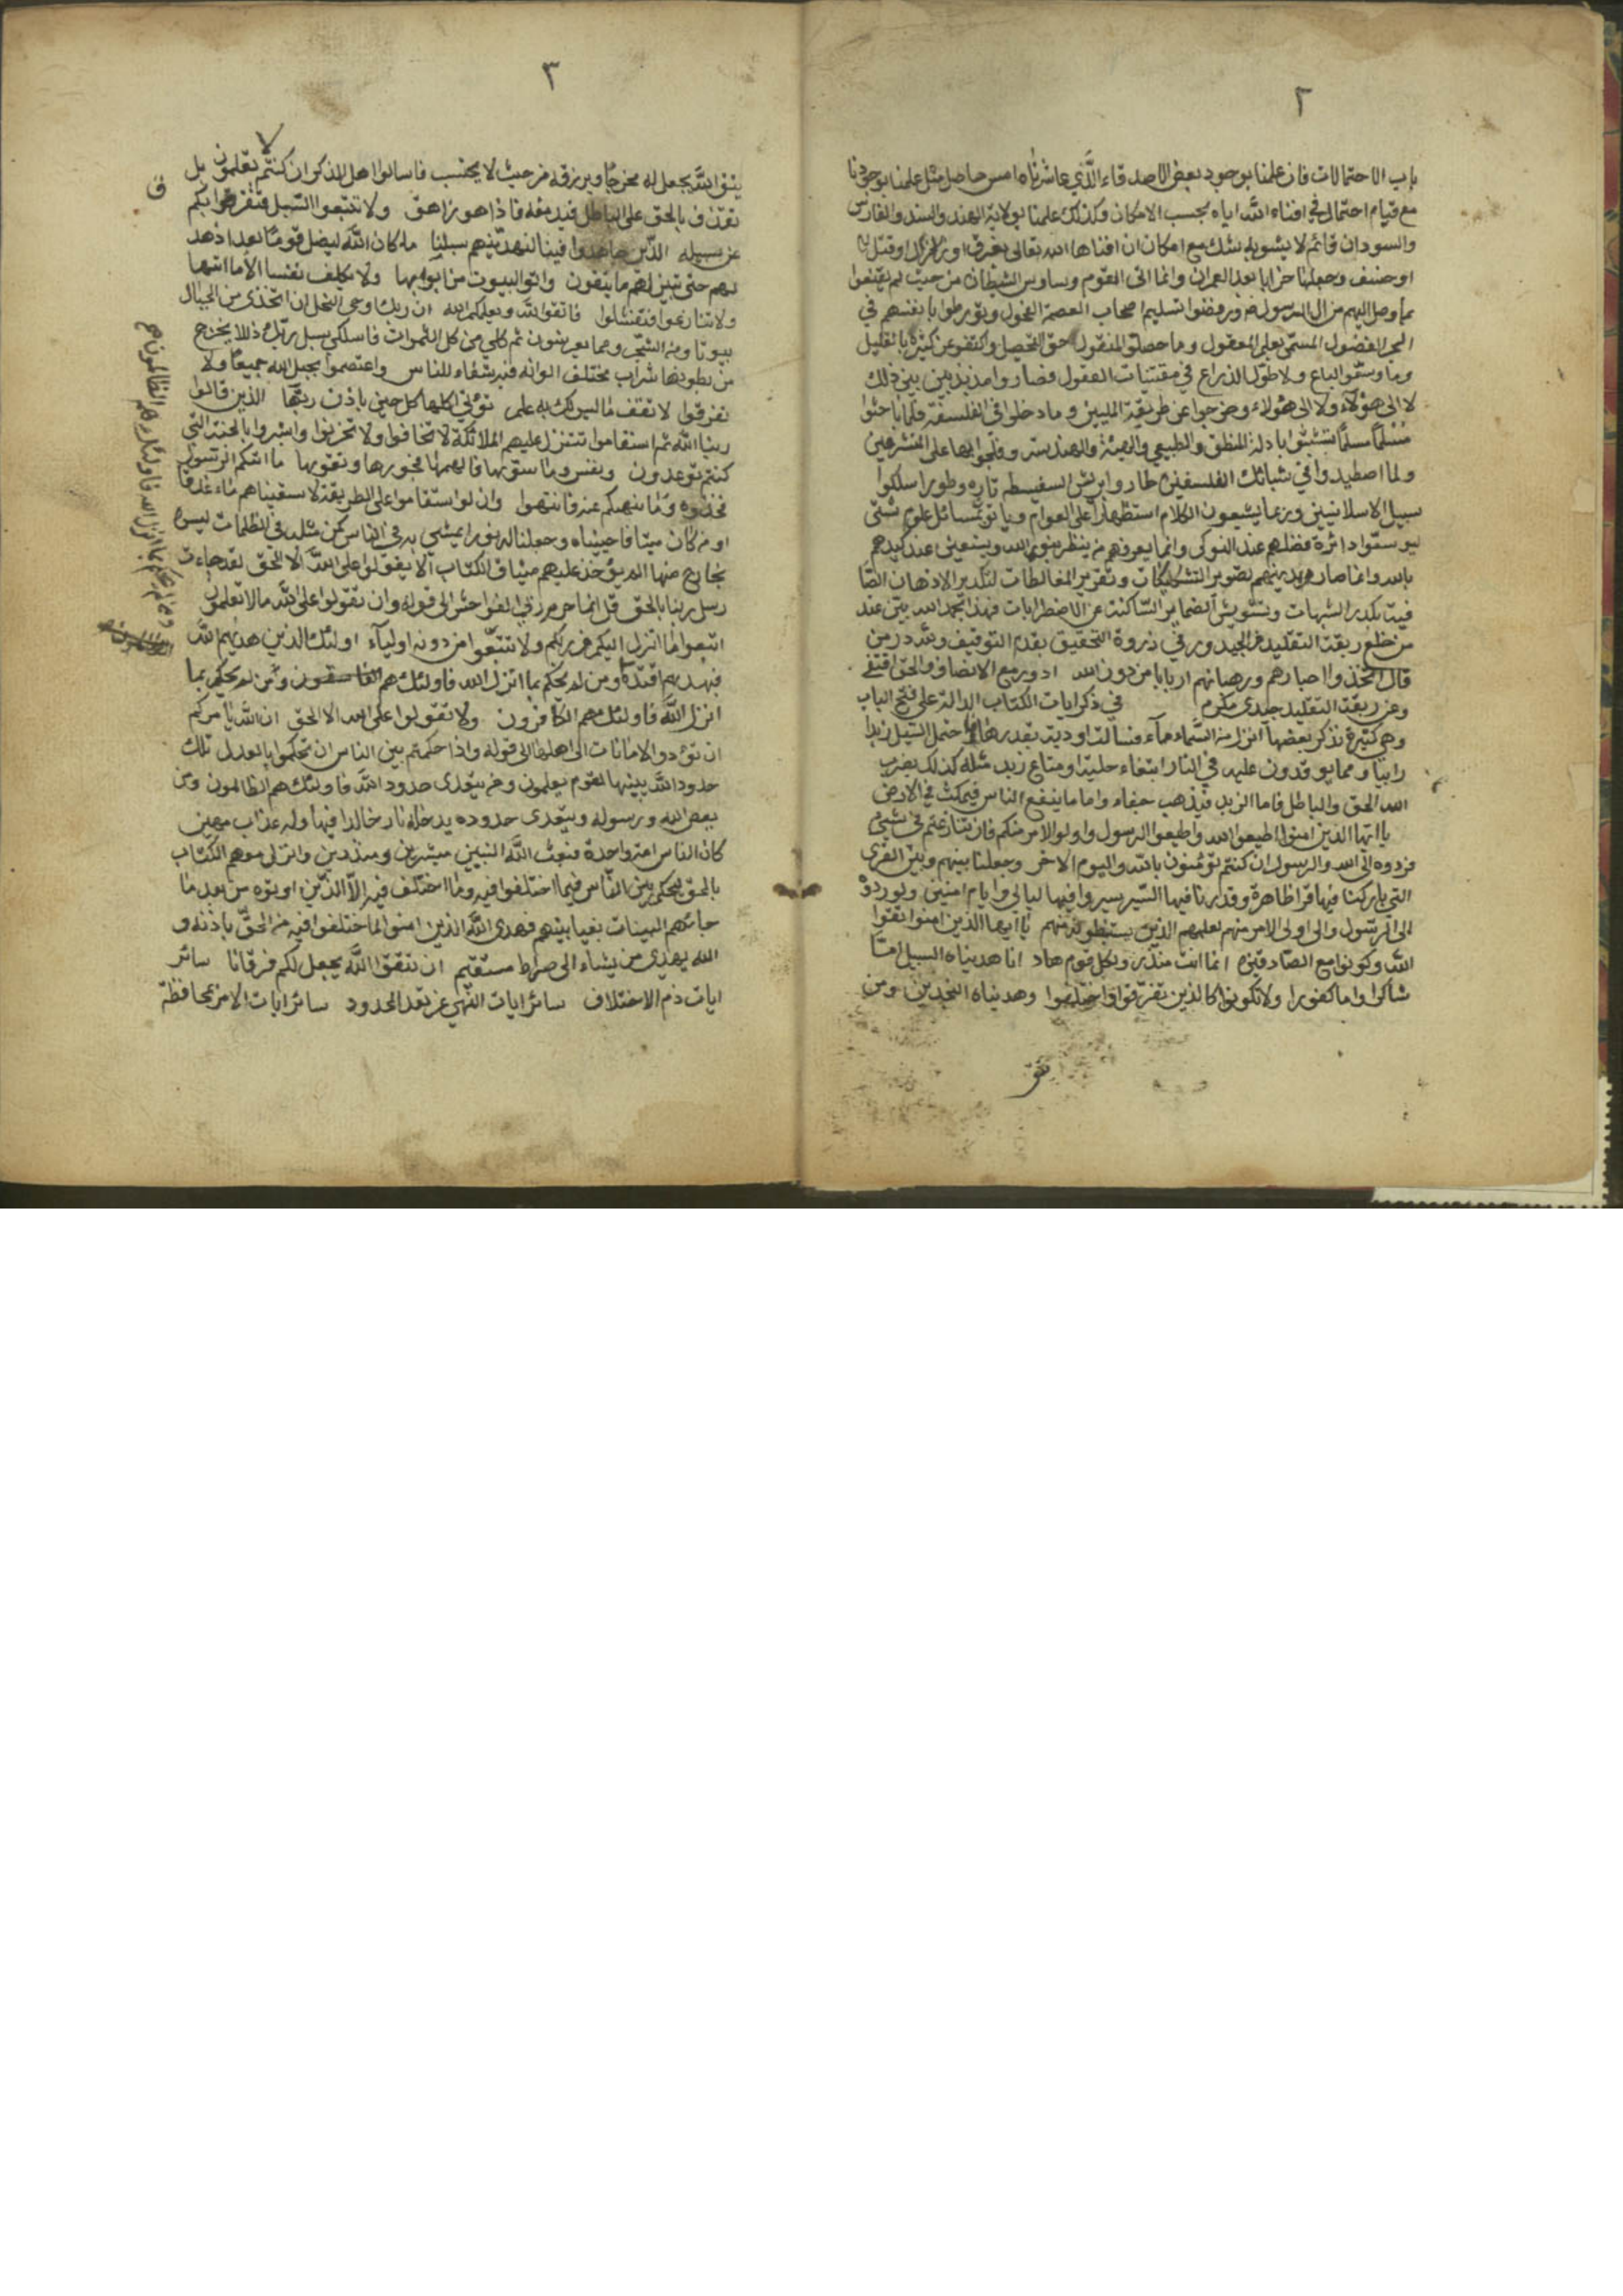 ٢
باب الاحتمالات فان علمنا بوجود بعض الاصدقاء الذي عاشرناه امس حاصل مثل علمنا بوجودنا
مع قيام احتمال في افناء الله اياه بحسب الامكان وكذلك علمنا بولاية الهند والسند والفارس
والسودان قائم لا يشوبه شك مع امكان ان افناها الله تعالى بغرق او زلزال او قتل
او خسف وجعلها خرابا بعد العمران وانما اتى القوم وساوس الشيطان من حيث لم يقنعوا
بما وصل اليهم من ال الرسول ورفضوا تسليم اصحاب العصمة الفحول وتورطوا بانفسهم في
البحر الفضول المسمى بعلم المعقول وما حصلوا المنقول حق التحصيل واكتفوا عن كثيره بالقليل
وما وسعوا الباع ولا طول الذراع في مقتنيات العقول فصاروا مذبذبين بين ذلك
لا الى هؤلاء ولا الى هؤلاء وخرجوا عن طريقة المليين وما دخلوا في الفلسفة فلما باحثوا
مسلما تشبثوا بادلة المنطق والطبيعي والهيئة والهندسة وفلجوا بها على المتشرعين
ولما اصطيدوا في شبائك الفلسفين طاروا بريش السفسطه تاره وطورا سلكوا
سبيل الاسلاميين وربما يشيعون الكلام استظهارا على العوام وياتون بمسائل علوم شتى
ليوسعوا دائرة فضلهم عند النوكى وانما يعرفهم من ينظر بنور الله ويستعين عند كيدهم
بالله وانما صار ديدنهم تصوير التشكيكات وتقرير المغالطات لتكدير الاذهان الصا
فية بكدر الشبهات وتشويش الضماير الساكنة عن الاضطرابات فهذا بحمد الله بين عند
من خلع ربقة التقليد عن الجيد ورقي ذروة التحقيق بقدم التوفيق ولله در من
قال اتخذوا احبارهم ورهبانهم اربابا من دون الله ادوير مع الانصاف والحق اقتفي
وعن ربقة التقليد جيدي مكرم في ذكر ايات الكتاب الدالة على فتح الباب
وهي كثيرة نذكر بعضها انزل من السماء ماء فسالت اودية بقدرها فاحتمل السيل زبدا
رابيا ومما يوقدون عليه في النار ابتغاء حلية او متاع زبد مثله كذلك يضرب
الله الحق والباطل فاما الزبد فيذهب جفاء واما ما ينفع الناس فيمكث في الارض
يا ايها الذين امنوا اطيعوا الله واطيعوا الرسول واولوا الامر منكم فان تنازعتم في شيئ
فردوه الى الله والرسول ان كنتم تؤمنون بالله واليوم الاخر وجعلنا بينهم وبين القرى
التي باركنا فيها قرا ظاهرة وقدرنا فيها السير سيروا فيها ليالي وايام امنين ولو ردوه
الى الرسول والى اولى الامر منهم لعلمهم الذين يستنبطونه منهم يا ايها الذين امنوا اتقوا
الله وكونوا مع الصادقين انما انت منذر ولكل قوم هاد انا هديناه السبيل اما
شاكرا واما كفورا ولا تكونوا كالذين تفرقوا واختلفوا وهديناه النجدين ومن
يتق
٣
يتق الله يجعل له مخرجا ويرزقه من حيث لا يحتسب فاسالوا اهل الذكر ان كنتم تعلمون بل
نقذف بالحق على الباطل فيدمغه فاذا هو زاهق ولا تتبعوا السبل فتفرق بكم
عن سبيله الذين جاهدوا فينا لنهدينهم سبلنا ما كان الله ليضل قوما بعد اذ هد
لهم حتى تبين لهم ما يتقون واتوا البيوت من ابوابها ولا نكلف نفسا الا ما اتيها
ولا تنازعوا فتفشلوا فاتقوا الله ويعلمكم الله ان ربك اوحى النحل ان اتخذى من الجبال
بيوتا ومن الشجر ومما يعرشون ثم كلي من كل الثمرات فاسلكي سبل ربك ذللا يخرج
من بطونها شراب مختلف الوانه فيه شفاء للناس واعتصموا بحبل الله جميعا ولا
تفرقوا لا تقف ما ليس لك به علم تؤتي اكلها كل حين باذن ربها الذين قالوا
ربنا الله ثم استقاموا تتنزل عليهم الملائكة لا تخافوا ولا تحزنوا وابشروا بالجنة التي
كنتم توعدون ونفس وما سويها فالهمها فجورها وتقويها ما اتيكم الرسول
فخذوه وما نهيكم عنه فانتهوا وان لو استقاموا على الطريقة لاسقيناهم ماء غدقا
او من كان ميتا فاحييناه وجعلنا له نورا يمشي به في الناس كمن مثله في الظلمات ليس
بخارج منها الم يؤخذ عليهم ميثاق الكتاب الا يقولوا على الله الا الحق لقد جاءت
رسل ربنا بالحق قل انما حرم ربي الفواحش الى قوله وان تقولوا على الله ما لا تعلمون
اتبعوا ما انزل اليكم من ربكم ولا تتبعوا من دونه اولياء اولئك الذين هديهم الله
فبهديهم اقتده ومن لم يحكم بما انزل الله فاولئك هم الفاسقون ومن لم يحكم بما
انزل الله فاولئك هم الكافرون ولا تقولوا على الله الا الحق ان الله يامركم
ان تؤدوا الامانات الى اهلها الى قوله واذا حكمتم بين الناس ان تحكموا بالعدل تلك
حدود الله يبينها لقوم يعلمون ومن يتعدى حدود الله فاولئك هم الظالمون ومن
يعص الله ورسوله ويتعدى حدوده يدخله نار خالدا فيها وله عذاب مهين
كان الناس امة واحدة فبعث الله النبيين مبشرين ومنذرين وانزل معهم الكتاب
بالحق ليحكم بين الناس فيما اختلفوا فيه وما اختلف فيه الا الذين اوتوه من بعد ما
جائتهم البينات بغيا بينهم فهدى الله الذين امنوا لما اختلفوا فيه من الحق باذنه و
الله يهدي من يشاء الى صراط مستقيم ان تتقوا الله يجعل لكم فرقانا سائر
ايات ذم الاختلاف سائر ايات النهي عن تعد الحدود سائر ايات الامر بمحافظة
ومن لم يحكم بما انزل الله فاولئك هم الظالمون